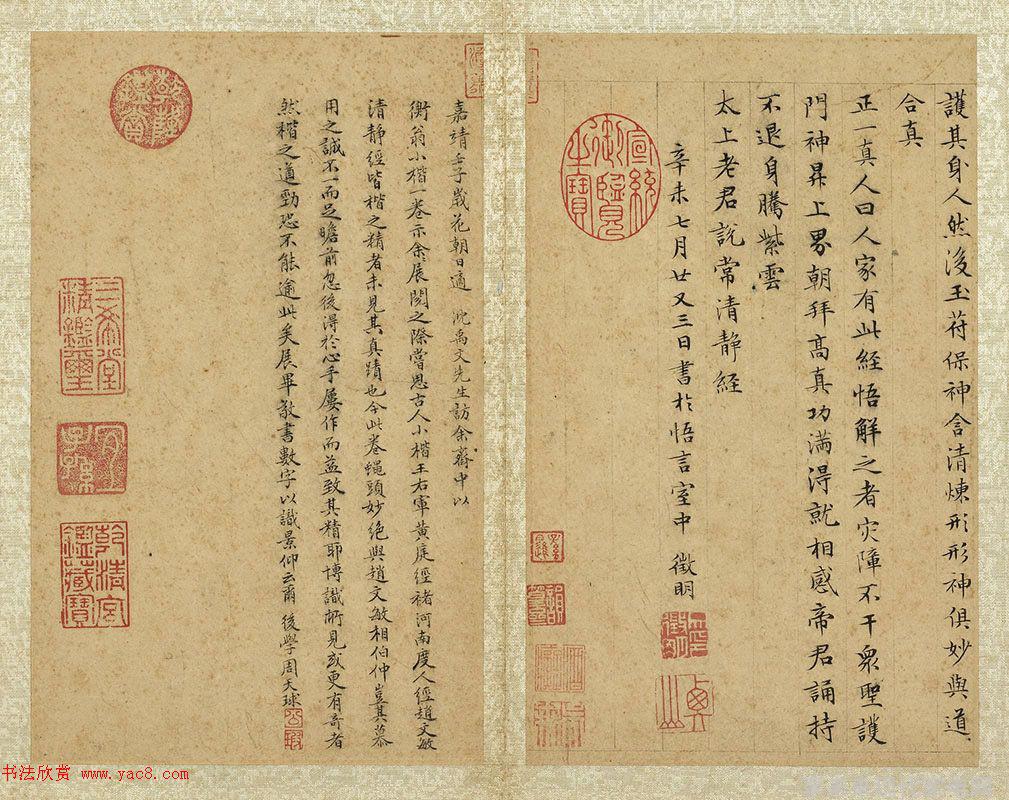 護其身人然後玉符保神舍清煉形形神俱妙與道
合真
正一真人曰人家有此經悟解之者灾障不干衆聖護
門神昇上界朝拜高真功满得就相感帝君誦持
不退身騰紫雲
太上老君說常清靜經
辛未七月廿又三日書於悟言室中 徵明
宣統御覽之寶
嘉靖壬子歲花朝日適 沈禹文先生訪余齋中以
衡翁小楷一卷示余展閱之際嘗思古人小楷王右軍黄庭經褚河南度人經趙文敏
清靜經皆楷之精者未見其真蹟也今此卷蠅頭妙絕與趙文敏相伯仲豈其慕
用之誠不一而足瞻前忽後得於心手屢作而益致其精耶博識所見或更有奇者
然楷之遒勁恐不能逾此矣展畢敬書數字以識景仰云爾 後學周天球
乾隆鑑賞
三希堂精鑑璽
宜子孫
乾清宮鑑藏寶
书法欣赏 www.yac8.com